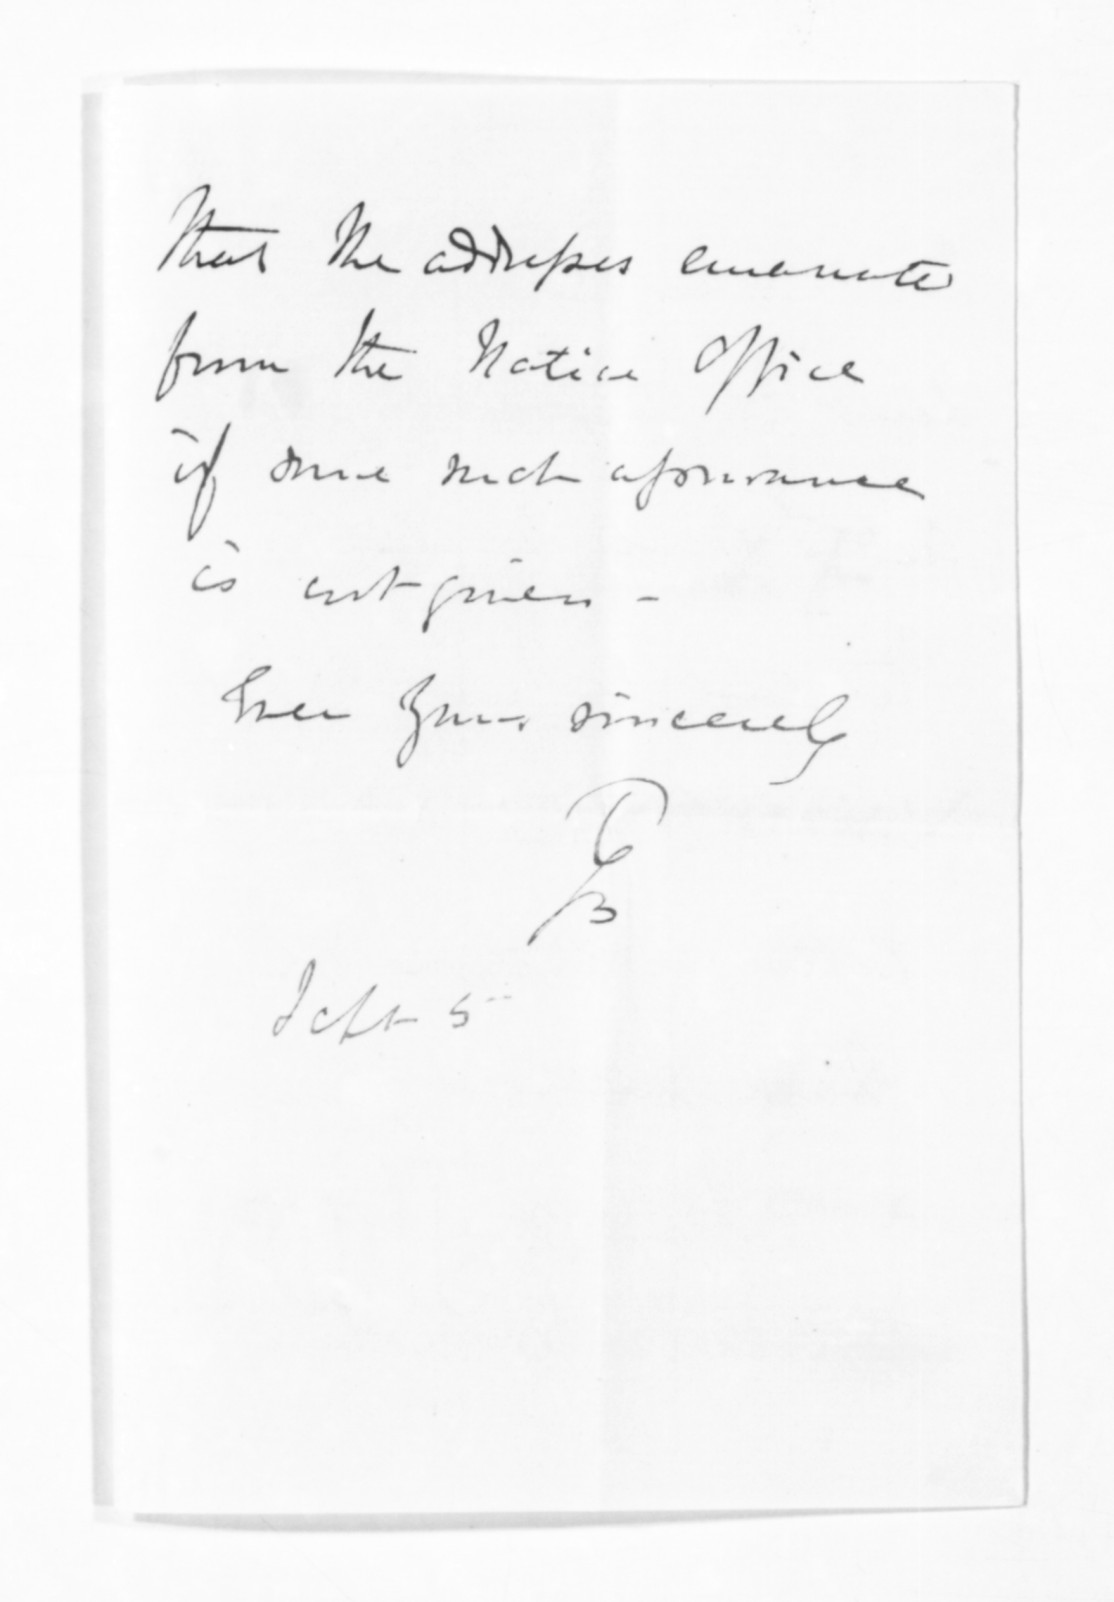 that the addresses emanate
from the Native Office
if some such assurance
is not given -
Ever Yours sincerely
Sept 5